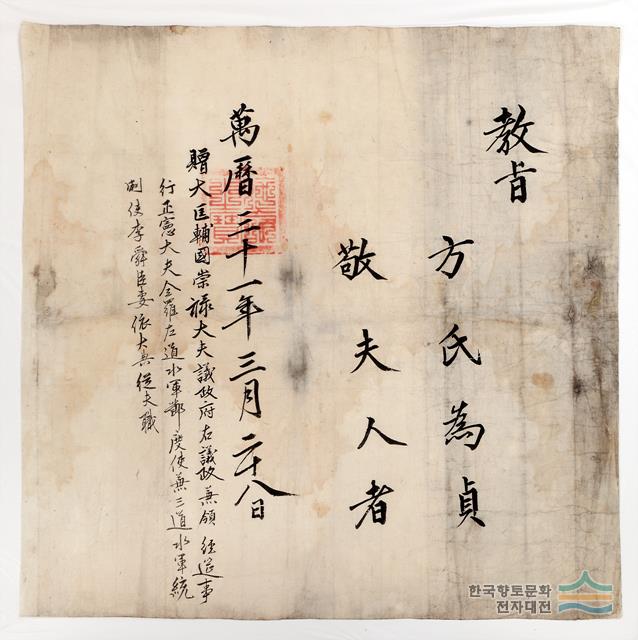 教旨
方氏為貞
敬夫人者
萬曆三十一年三月二十八日
贈大匡輔國崇祿大夫議政府右議政兼領 經筵事
行正憲大夫全羅左道水軍節度使兼三道水軍統
制使李舜臣妻依大典從夫職
한국향토문화
전자대전